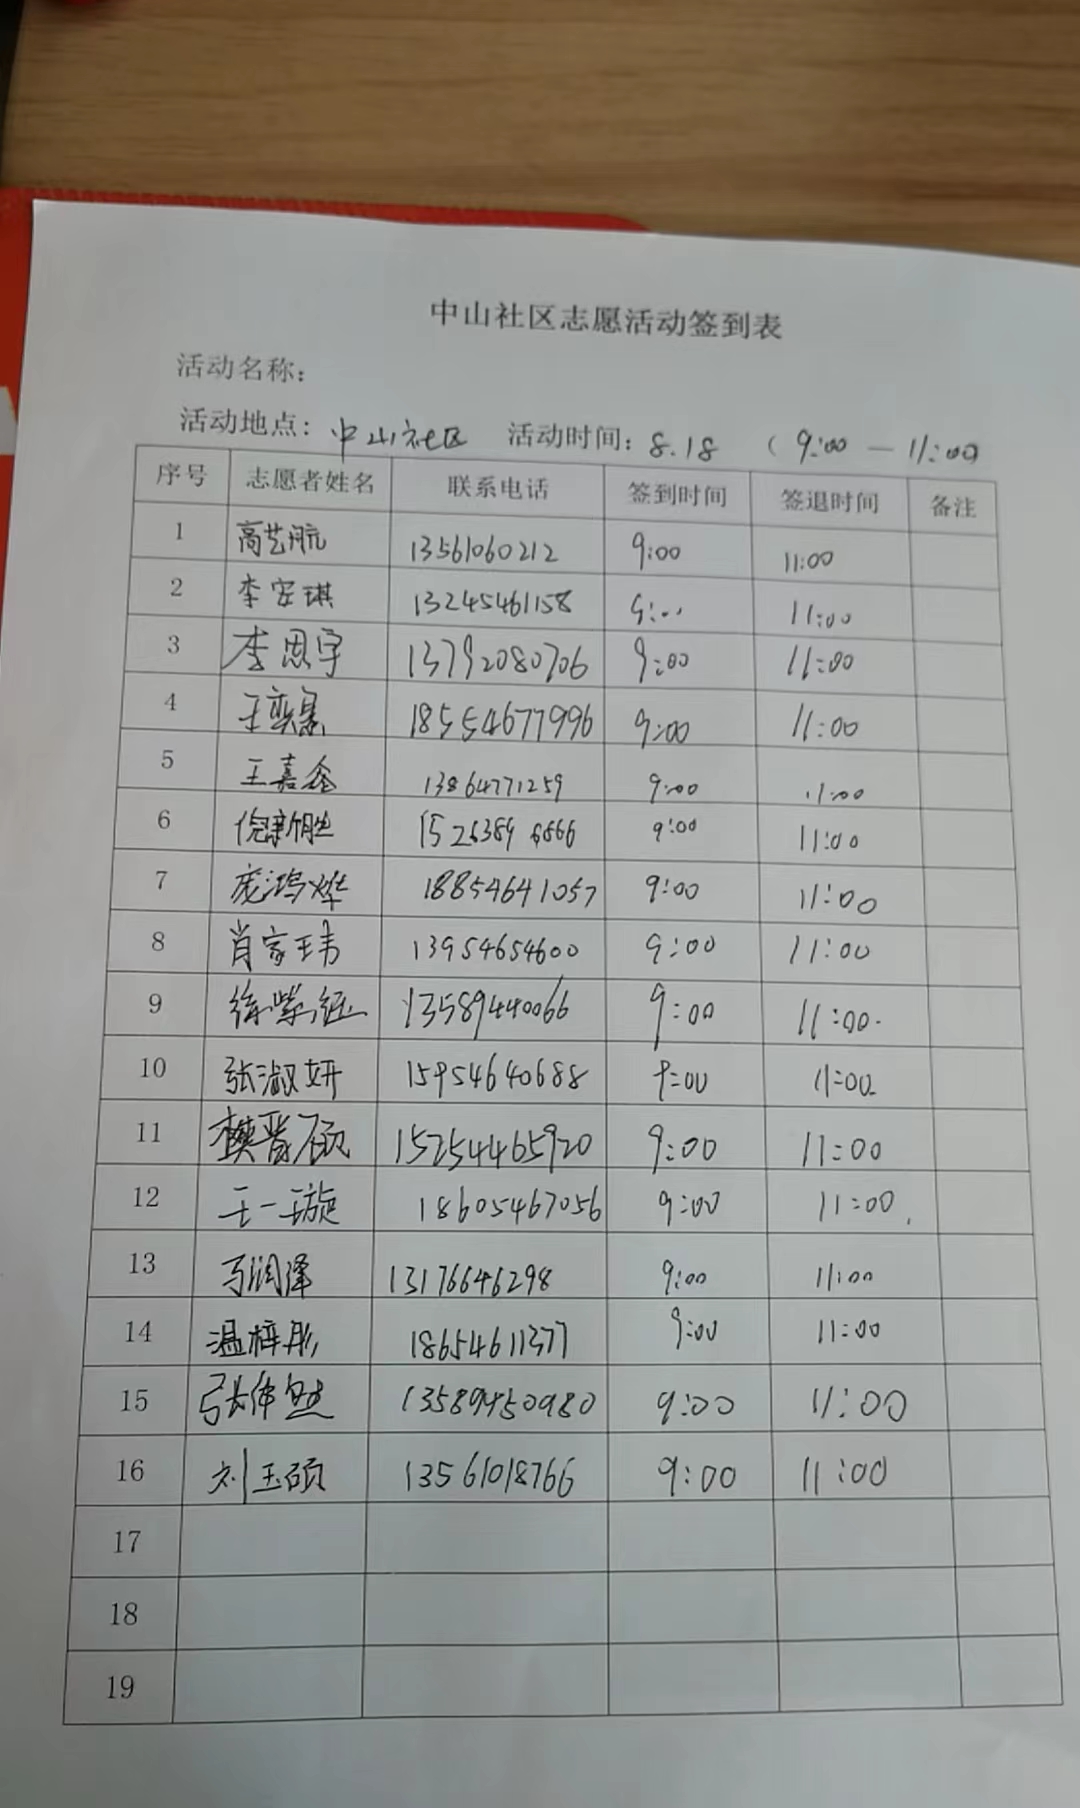 中山社区志愿活动签到表
活动名称:
活动地点: 中山社区 活动时间: 8.18 ( 9:00 — 11:00
序号 志愿者姓名 联系电话 签到时间 签退时间 备注
1 高艺航 13561060212 9:00 11:00
2 李安琪 13245461158 9:00 11:00
3 李思宇 13792080706 9:00 11:00
4 王奕 18554677996 9:00 11:00
5 王嘉鑫 13864771259 9:00 11:00
6 倪新胜 9:00 11:00
7 庞鸿烨 18854641057 9:00 11:00
8 肖家玮 13954654600 9:00 11:00
9 徐紫钰 13589440066 9:00 11:00
10 张淑妍 15954640688 9:00 11:00
11 樊晋硕 15254465920 9:00 11:00
12 王一璇 18605467056 9:00 11:00
13 马润泽 13176646298 9:00 11:00
14 温梓彤 18654611377 9:00 11:00
15 张倬然 13589450980 9:00 11:00
16 刘玉硕 13561018766 9:00 11:00
17
18
19